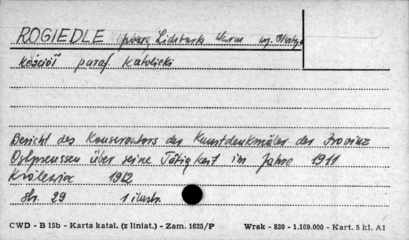 ROGIEDLE Lidzbark Warm woj. Olsztyn
kościół paraf. katolicki
Bericht des Konservators der Kunstdenkmäler der Provinz
Ostpreussen über seine Tätigkeit im Jahre 1911
Królewiec 1912
str. 29 1 ilustr.
CWD - B 15b - Karta katal. (z liniat.) - Zam. 1625/P Wrak - 830 - 1.169.000 - Kart. 5 kl. A1